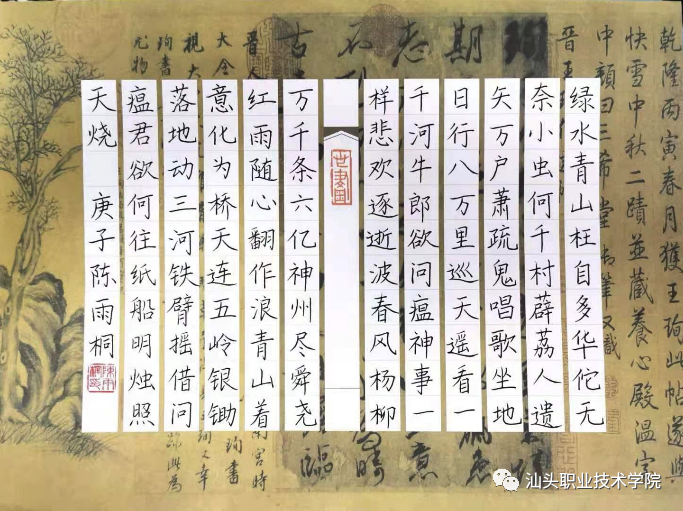 乾隆丙寅春月獲王珣此帖遂與
快雪中秋二蹟並藏養心殿溫室
中顏曰三希堂筆又識
绿水青山枉自多华佗无
奈小虫何千村薜荔人遗
矢万户萧疏鬼唱歌坐地
日行八万里巡天遥看一
千河牛郎欲问瘟神事一
样悲欢逐逝波春风杨柳
万千条六亿神州尽舜尧
红雨随心翻作浪青山着
意化为桥天连五岭银锄
落地动三河铁臂摇借问
瘟君欲何往纸船明烛照
天烧 庚子陈雨桐
汕头职业技术学院